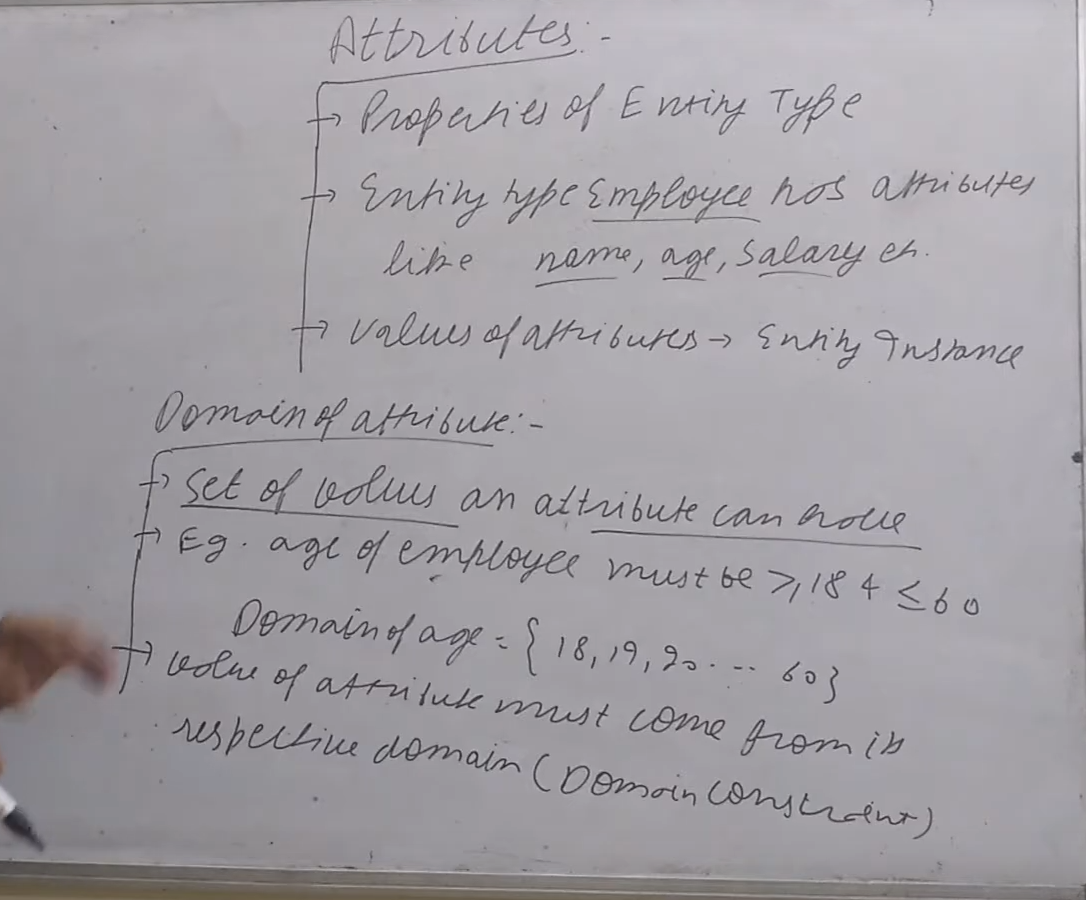 Attributes:-
→ Properties of Entity Type
→ Entity type Employee has attributes
like name, age, salary etc.
→ values of attributes → Entity Instance
Domain of attribute:-
→ Set of values an attribute can have
→ Eg. age of employee must be ≥ 18 & ≤ 60
Domain of age = { 18, 19, 20 ... 60 }
→ value of attribute must come from its
respective domain (Domain constraint)